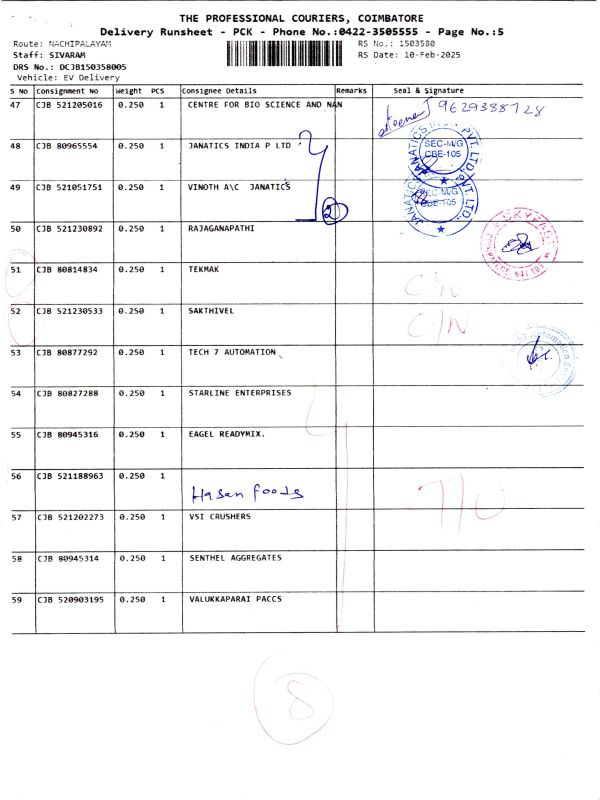 THE PROFESSIONAL COURIERS, COIMBATORE
Delivery Runsheet - PCK - Phone No.:0422-3505555 - Page No.:5
Route: NACHIPALAYAM RS No.: 1503580
Staff: SIVARAM RS Date: 10-Feb-2025
DRS No.: DCJB150358005
Vehicle: EV Delivery
S No Consignment No Weight PCS Consignee Details Remarks Seal & Signature
47 CJB 521205016 0.250 1 CENTRE FOR BIO SCIENCE AND NAN 9629388728
48 CJB 80965554 0.250 1 JANATICS INDIA P LTD
SEC-M/G
CBE-105
49 CJB 521051751 0.250 1 VINOTH A\C JANATICS
2
SEC-M/G
CBE-105
JANATICS PVT. LTD.
50 CJB 521230892 0.250 1 RAJAGANAPATHI
51 CJB 80814834 0.250 1 TEKMAK C/N
52 CJB 521230533 0.250 1 SAKTHIVEL C/N
53 CJB 80877292 0.250 1 TECH 7 AUTOMATION
54 CJB 80827288 0.250 1 STARLINE ENTERPRISES
55 CJB 80945316 0.250 1 EAGEL READYMIX.
56 CJB 521188963 0.250 1
Hasan Foods T/U
57 CJB 521202273 0.250 1 VSI CRUSHERS
58 CJB 80945314 0.250 1 SENTHEL AGGREGATES
59 CJB 520903195 0.250 1 VALUKKAPARAI PACCS
8